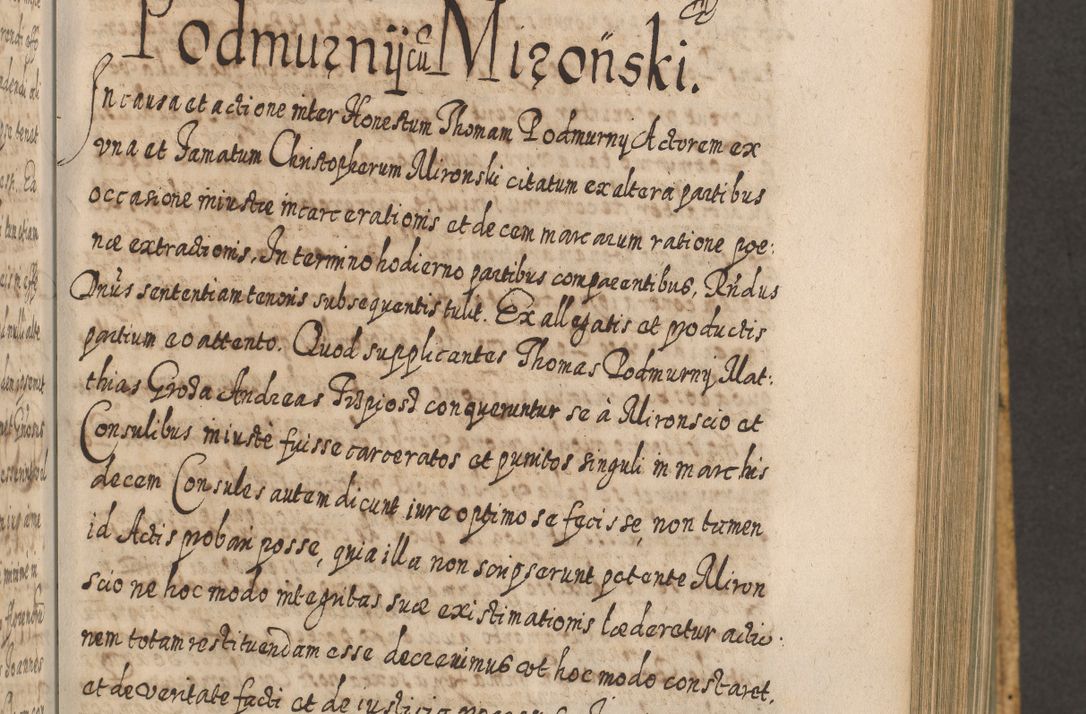 Podmurnÿ cū Miroński.
In causa et actione inter Honestum Thomam Podmurny Actorem ex
vna et Famatum Christopherum Mironski citatum ex altera partibus
occasione iniustæ incarcerationis et decem marcarum ratione poe:
næ extractionis, In termino hodierno partibus comparentibus, Rńdus
Dnūs sententiam tenoris subsequentis tulit. Ex allegatis et productis
partium eo attento. Quod supplicantes Thomas Podmurny Mat:
thias Andreas conqueruntur se à Mironscio et
Consulibus iniustè fuisse carceratos et punitos singuli in marchis
decem Consules autem dicunt iure optimo se fecisse, non tamen
id Actis probari posse, quia illa non scripserunt petente Miron
scio ne hoc modo integritas suæ existimationis læderetur actio:
nem totam restituendam esse decreuimus vt hoc modo constaret,
et de veritate facti et de iustitia